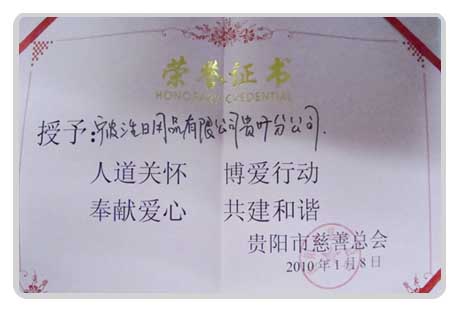 荣誉证书
HONORARY CREDENTIAL
授予:宁波三生日用品有限公司贵州分公司.
人道关怀 博爱行动
奉献爱心 共建和谐
贵阳市慈善总会
2010年1月8日